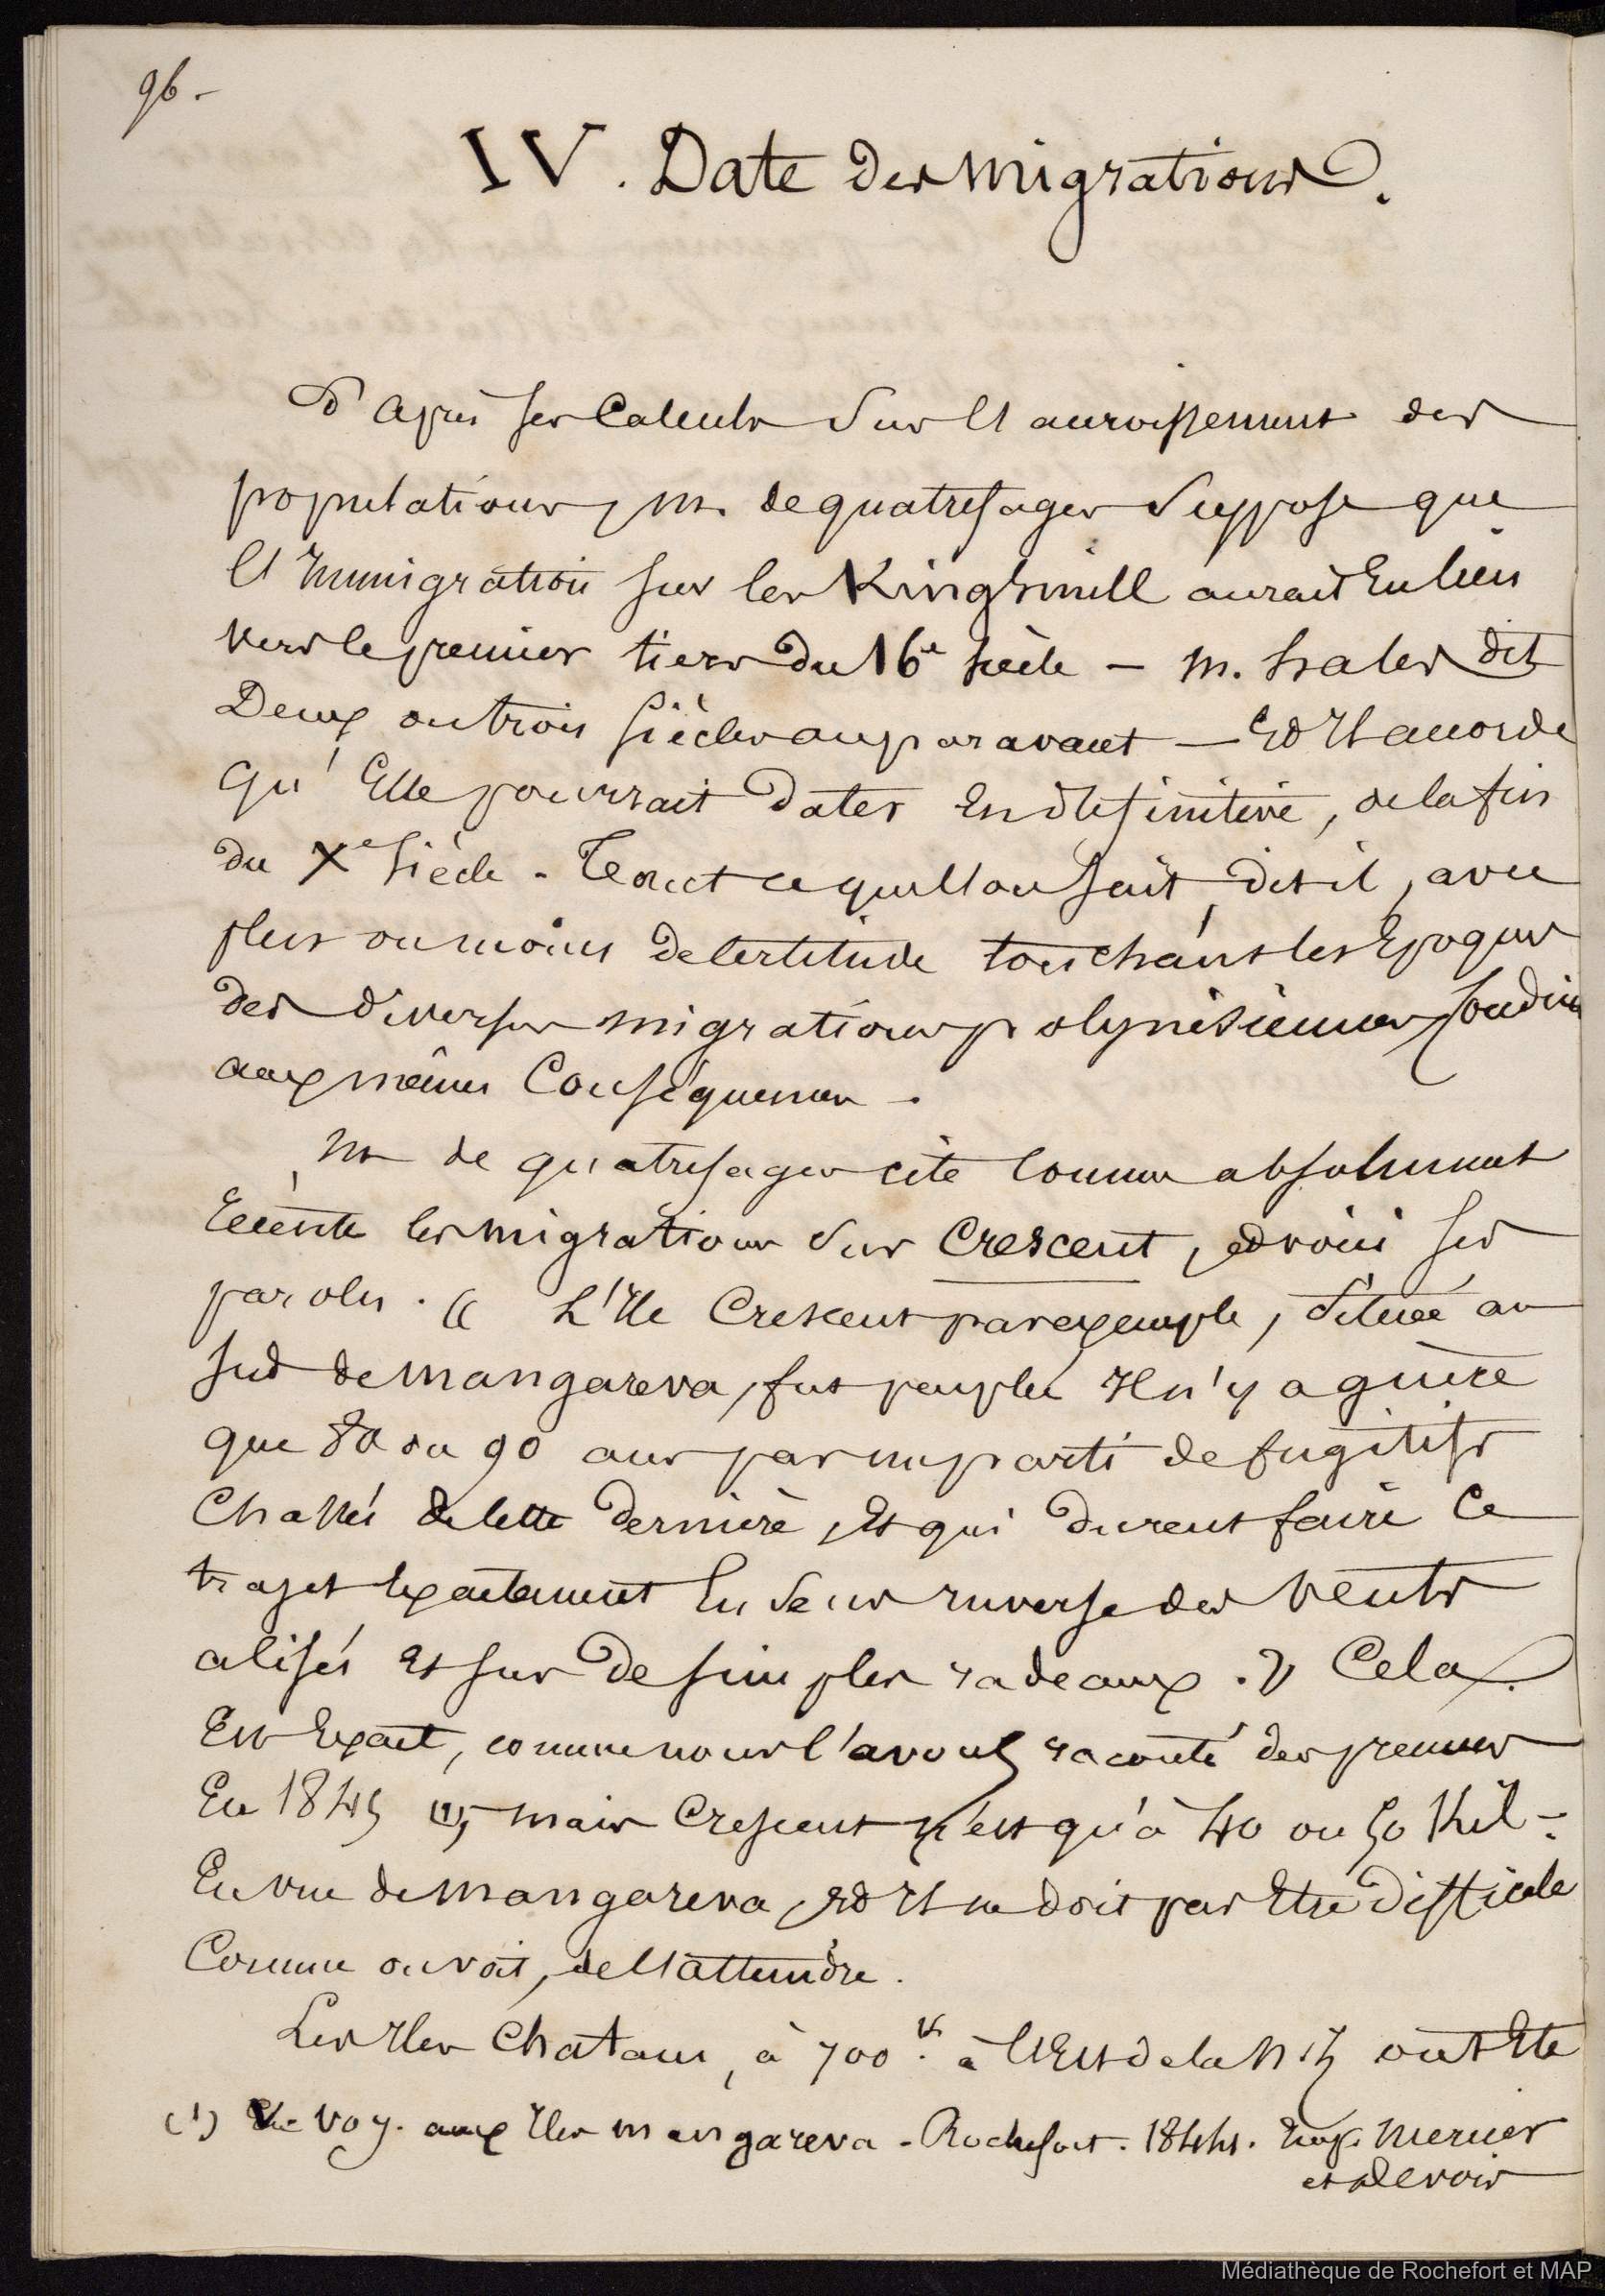 96.
IV. Date des migrations.
D'après ses calculs sur l'accroissement des
populations, M. de quatrefages suppose que
l'Immigration sur les Kingsmill aurait eu lieu
vers le premier tiers du 16e siècle – M. hales dit
Deux ou trois siècles auparavant – Et Il accorde
qu'Elle pourrait dater En définitive, de la fin
du Xe siècle. Tout ce que l'on sait, dit-il, avec
plus ou moins de certitude touchant les Epoques
des diverses migrations polynésiennes, conduit
aux mêmes Conséquences.
M. de quatrefages cite comme absolument
récente les migrations sur Crescent, et voici ses
paroles. « L'Ile Crescent par exemple, située au
sud de mangareva, fut peuplée Il n'y a guère
que 80 ou 90 ans par un parti de fugitifs
Chassés de cette dernière, Et qui durent faire Ce
trajet Exactement En sens inverse des vents
alisés Et sur de simples radeaux. » Cela
Est Exact, comme nous l'avons raconté des premiers
En 1845 (1), mais Crescent n'est qu'à 40 ou 50 Kil.
En vue de mangareva, Et Il ne doit pas Etre difficile
Comme on voit, de l'atteindre.
Les Iles Chatam, à 700 k. à l'Est de la N.Z, ont Eté
(1) Voy. aux Iles mangareva. Rochefort. 1844. Imp. Mercier
et Devois
Médiathèque de Rochefort et MAP